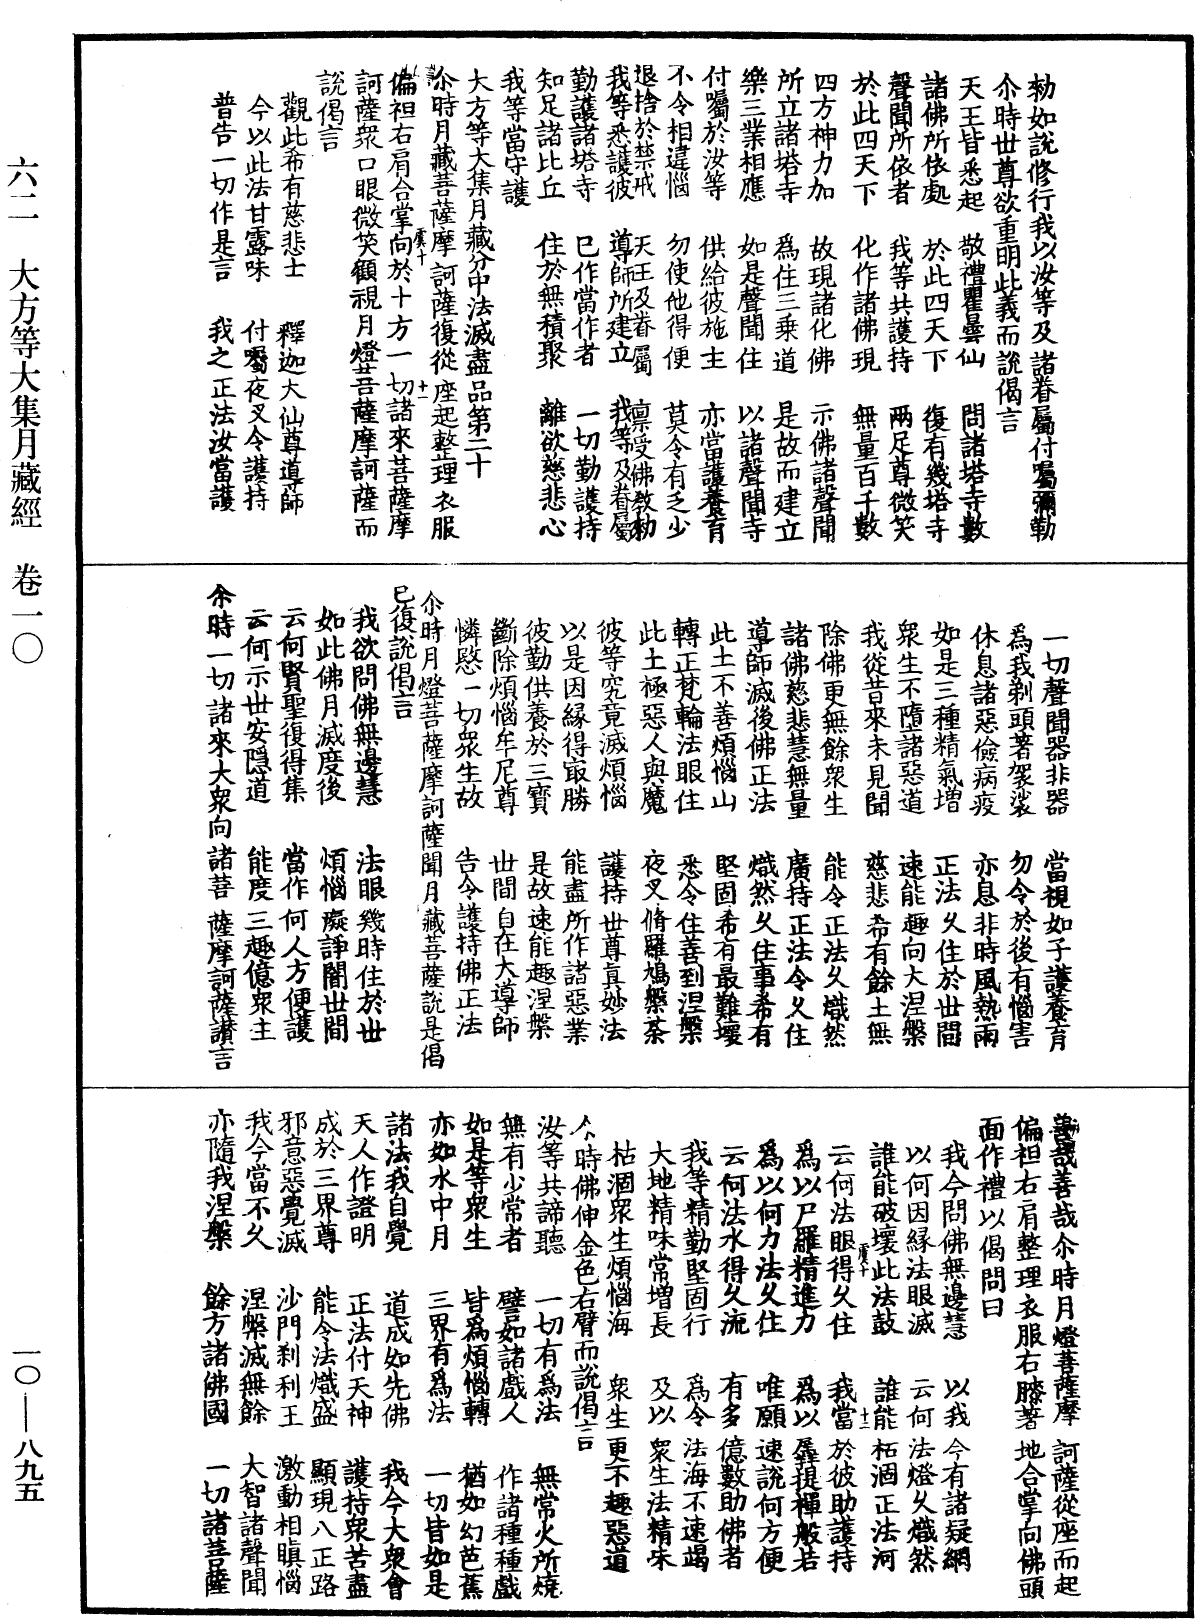 勑如說修行我以汝等及諸眷屬付囑彌勒
尒時世尊欲重明此義而說偈言
天王皆悉起　敬禮瞿曇仙　問諸塔寺數
諸佛所依處　於此四天下　復有幾塔寺
聲聞所依者　我等共護持　兩足尊微笑
於此四天下　化作諸佛現　無量百千數
四方神力加　故現諸化佛　示佛諸聲聞
所立諸塔寺　爲住三乗道　是故而建立
樂三業相應　如是聲聞住　以諸聲聞寺
付囑於汝等　供給彼施主　亦當護養育
不令相違惱　勿使他得便　莫令有乏少
退捨於禁戒　天王及眷屬　禀受佛教勑
我等悉護彼　導師所建立　我等及眷屬
勤護諸塔寺　已作當作者　一切勤護持
知足諸比丘　住於無積聚　離欲慈悲心
我等當守護
大方等大集月藏分中法滅盡品第二十
尒時月藏菩薩摩訶薩復從座起整理衣服
偏袒右肩合掌向於十方一切諸來菩薩摩
訶薩衆口眼微笑顧視月燈菩薩摩訶薩而
說偈言
觀此希有慈悲士　釋迦大仙尊導師
今以此法甘露味　付囑夜叉令護持
普告一切作是言　我之正法汝當護
一切聲聞器非器　當視如子護養育
爲我剃頭著袈裟　勿令於後有惱害
休息諸惡儉病疫　亦息非時風熱雨
如是三種精氣增　正法久住於世間
衆生不墮諸惡道　速能趣向大涅槃
我從昔來未見聞　慈悲希有餘土無
除佛更無餘衆生　能令正法久熾然
諸佛慈悲慧無量　廣持正法令久住
導師滅後佛正法　熾然久住事希有
此土不善煩惱山　堅固希有最難壞
轉正梵輪法眼住　悉令住善到涅槃
此土極惡人與魔　夜叉脩羅鳩槃荼
彼等究竟滅煩惱　護持世尊真妙法
以是因緣得最勝　能盡所作諸惡業
彼勤供養於三寶　是故速能趣涅槃
斷除煩惱牟尼尊　世間自在大導師
憐愍一切衆生故　告令護持佛正法
尒時月燈菩薩摩訶薩聞月藏菩薩說是偈
已復說偈言
我欲問佛無邊慧　法眼幾時住於世
如此佛月滅度後　煩惱癡諍闇世間
云何賢聖復得集　當作何人方便護
云何示世安隱道　能度三趣億衆主
尒時一切諸來大衆向諸菩薩摩訶薩讃言
善哉善哉尒時月燈菩薩摩訶薩從座而起
偏袒右肩整理衣服右膝著地合掌向佛頭
面作禮以偈問曰
我今問佛無邊慧　以我今有諸疑網
以何因緣法眼滅　云何法燈久熾然
誰能破壞此法鼓　誰能枯涸正法河
云何法眼得久住　我當於彼助護持
爲以尸羅精進力　爲以羼提禪般若
爲以何力法久住　唯願速說何方便
云何法水得久流　有多億數助佛者
我等精勤堅固行　爲令法海不速竭
大地精味常增長　及以衆生法精味
枯涸衆生煩惱海　衆生更不趣惡道
尒時佛伸金色右臂而說偈言
汝等共諦聽　一切有爲法　無常火所燒
無有少常者　譬如諸戲人　作諸種種戲
如是等衆生　皆爲煩惱轉　猶如幻芭蕉
亦如水中月　三界有爲法　一切皆如是
諸法我自覺　道成如先佛　我今大衆會
天人作證明　正法付天神　護持衆苦盡
成於三界尊　能令法熾盛　顯現八正路
邪意惡覺滅　沙門刹利王　激動相瞋惱
我今當不久　涅槃滅無餘　大智諸聲聞
亦隨我涅槃　餘方諸佛國　一切諸菩薩
六二　大方等大集月藏經　卷一〇
一〇——八九五